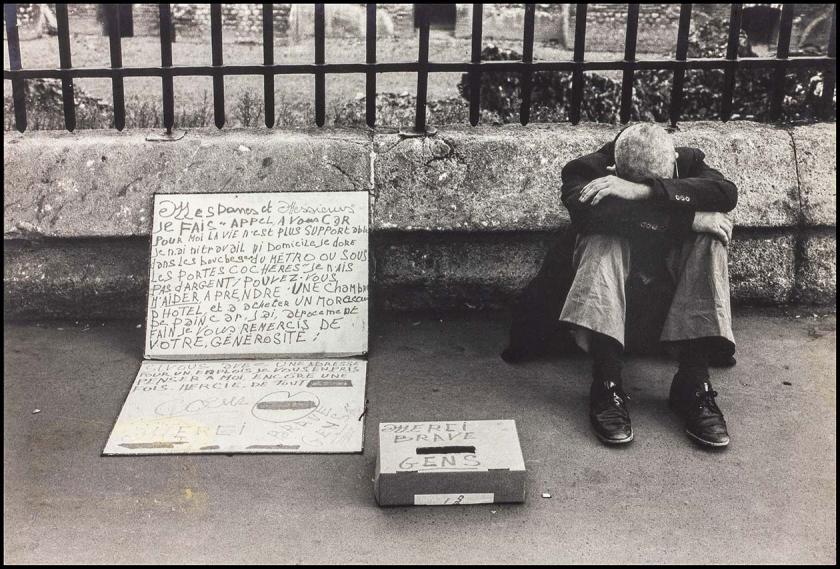 Mesdames et Messieurs
JE FAIS APPEL A VOUS CAR
POUR MOI LA VIE N'EST PLUS SUPPORTABLE
Je n'ai ni travail ni Domicile, je dore
dans les bouches du METRO OU SOUS
LES PORTES COCHERES - Je N'AIS
PAS d'ARGENT, POUVEZ-VOUS
M'AIDER A PRENDRE - UNE CHambre
D'HOTEL, et a acheter UN MORCeau
De Pain car j'ai, atrocement
FAIN Je VOUS REMERCIS DE
VOTRE, GENEROSITE !
SI VOUS AVEZ UNE ADRESSE
POUR UN EMPLOIS JE VOUS EN PRIS
PENSER A MOI ENCORE UNE
FOIS. MERCIE. DE TOUT
COEUR
MERCI
BRAVE
GENS
MERCI
BRAVE
GENS